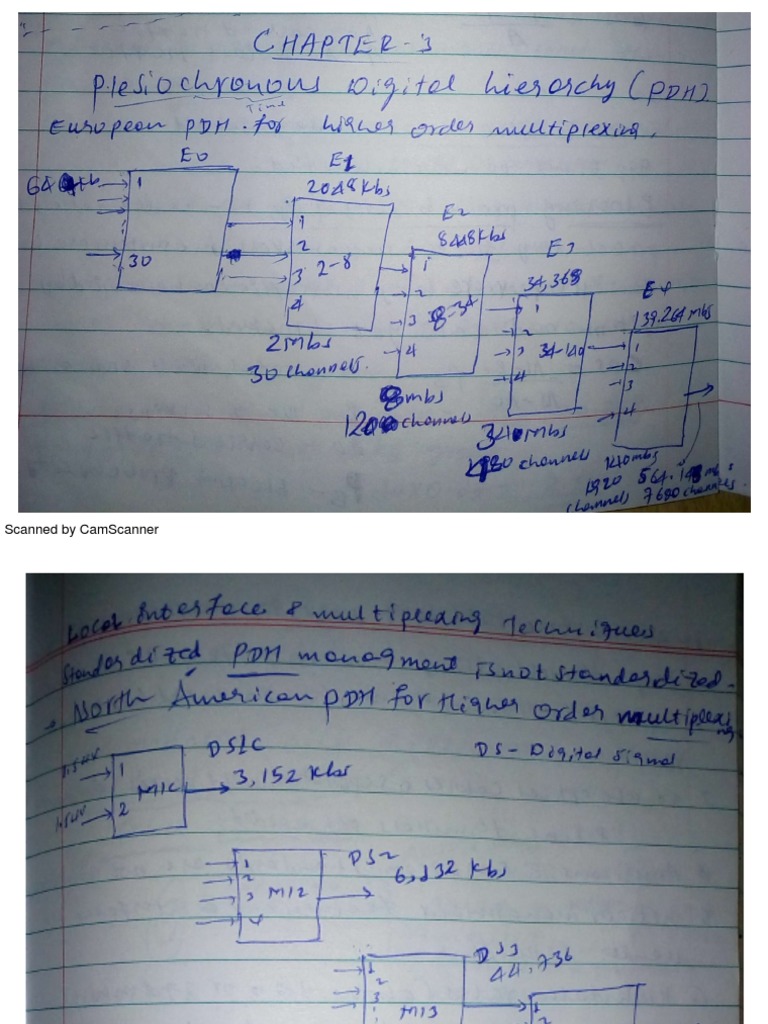 CHAPTER-3
Plesiochronous Digital hierarchy (PDH)
Time
European PDH. for higher order multiplexing.
E0
E1
64 kb
1
30
2048 kbs
1
2
3
4
2-8
2 mbs
30 channels.
E2
8448 kbs
1
2
3
4
8-34
8 mbs
120 channels
E3
34,368
1
2
3
4
34-140
34 mbs
480 channels
E4
139.264 mbs
1
2
3
4
140 mbs
1920
channels
564.148 mbs
7680 channels.
Scanned by CamScanner
Local Interface & multiplexing Techniques
Standardized PDH managment is not standardized.
→ North American PDH for Higher Order multiplexing
DS1C
DS - Digital Signal
1
2
M1C
3,152 kbs
DS2
6,132 kbs
1
2
3
4
M12
DS3
44,736
1
2
3
M13
1
2